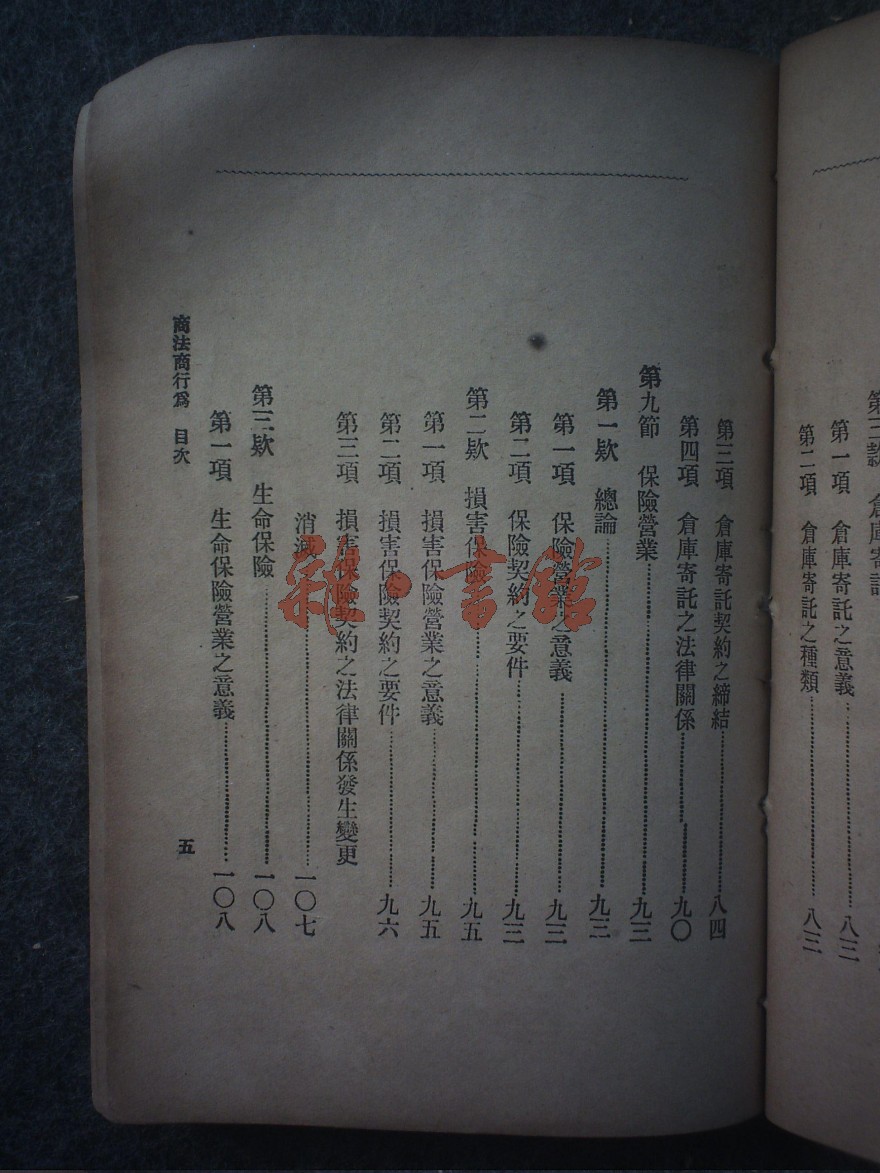 第一項　倉庫寄託之意義………八三
第二項　倉庫寄託之種類………八三
第三項　倉庫寄託契約之締結………八四
第四項　倉庫寄託之法律關係………九〇
第九節　保險營業………九三
第一欵　總論………九三
第一項　保險營業之意義………九三
第二項　保險契約之要件………九三
第二欵　損害保險………九五
第一項　損害保險營業之意義………九五
第二項　損害保險契約之要件………九六
第三項　損害保險契約之法律關係發生變更
消滅………一〇七
第三欵　生命保險………一〇八
第一項　生命保險營業之意義………一〇八
商法商行爲　目次
五
雜·書館